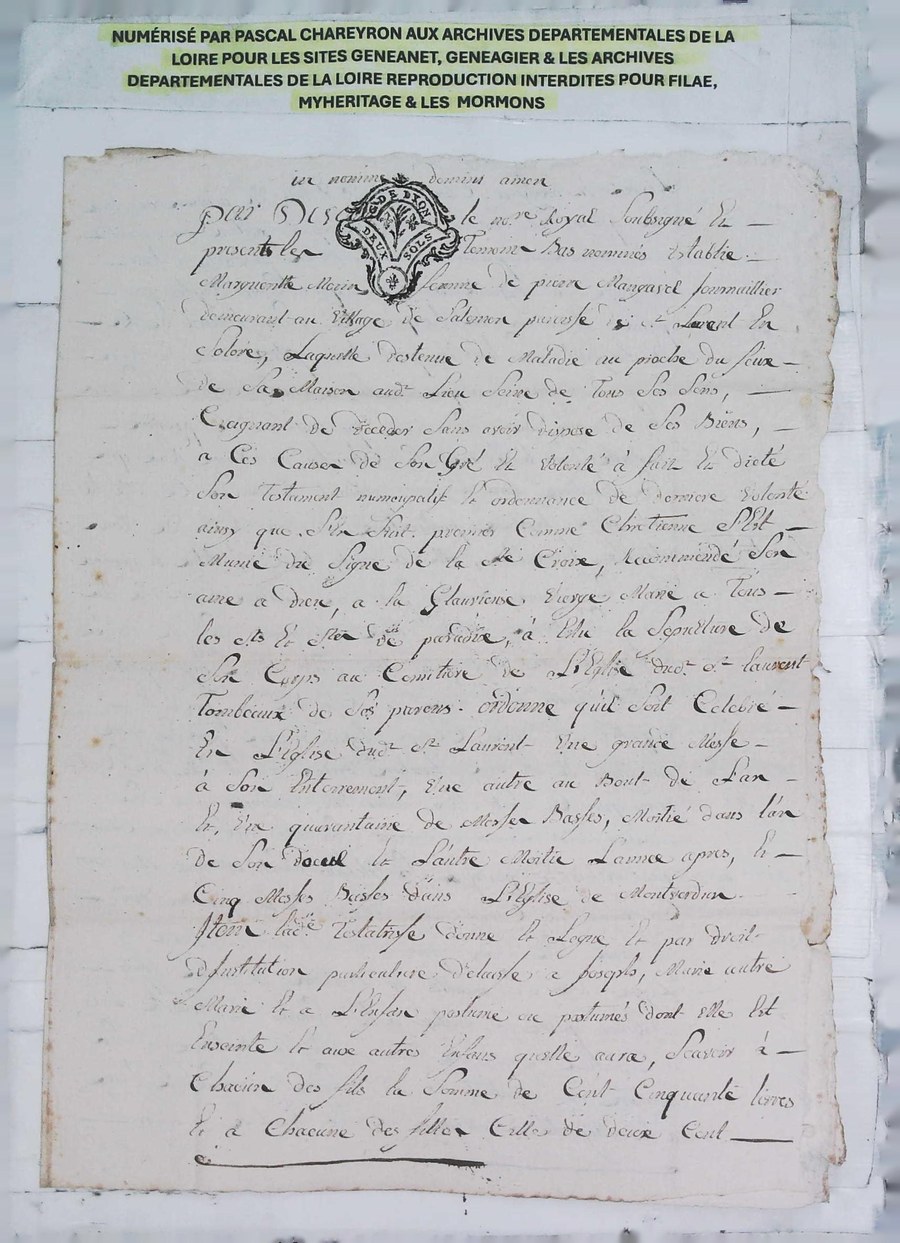 NUMÉRISÉ PAR PASCAL CHAREYRON AUX ARCHIVES DEPARTEMENTALES DE LA
LOIRE POUR LES SITES GENEANET, GENEAGIER & LES ARCHIVES
DEPARTEMENTALES DE LA LOIRE REPRODUCTION INTERDITES POUR FILAE,
MYHERITAGE & LES MORMONS
in nomine domini amen
G. DE DIJON
DEUX SOLS
par le no.re Royal Soubsigné Et
presents les Temoins Bas nommés Establie
Margueritte Morin femme de pierre
demeurant au Village de Salemon paroisse de St Laurent En
Solore, Laquelle destenue de Maladie au proche du feux
de Sa Maison aud.t Lieu Seine de Tous Ses Sens,
Craignant de deceder Sans avoir dispose de Ses Biens,
a Ces Causes de Son Gré Et Volonté à fait Et dicté
Son Testament nuncupatif Et ordonnance de derniere Volonté
ainsy que S'En Suit. premier Comme Chretienne S'Est
Munie du Signe de la Ste Croix, Recommendé Son
ame a dieu, a la Glaurieuse Vierge Marie a Tous
les Sts Et Stes de paradix, à Elu la Sepulture de
Son Corps au Cemitiere de L'Eglise dud.t St Laurent
Tombeaux de Ses parens. ordonne qu'il Soit Celebré
En L'Eglise dud.t St Laurent Une grande Messe
à Son Enterrement, Une autre au Bout de L'an
Et, Une quarantaine de Messes Basses, Moitié dans l'an
de Son doeuil Et L'autre Moitie L'annee apres, Et
Cinq Messes Basses dans L'Eglise de Montverdun.
Item lad.e Testatrisse donne Et Legue Et par droit
d'Institution particuliere delaisse a Joseph, Marie autre
Marie Et a L'Enfan postume ou postumés dont Elle Est
Enseinte Et aux autres Enfans quelle aura, Scavoir à
Chacun des fils la Somme de Cent Cinquante livres
Et a Chacune des filles Celle de deux Cent